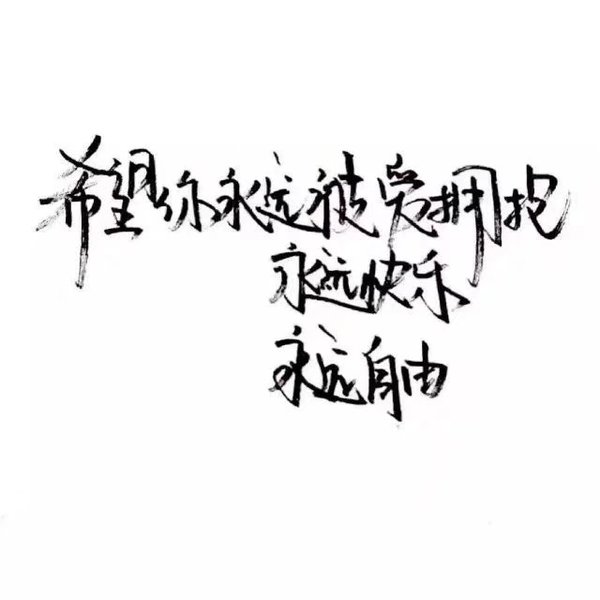 希望你永远被爱拥抱
永远快乐
永远自由